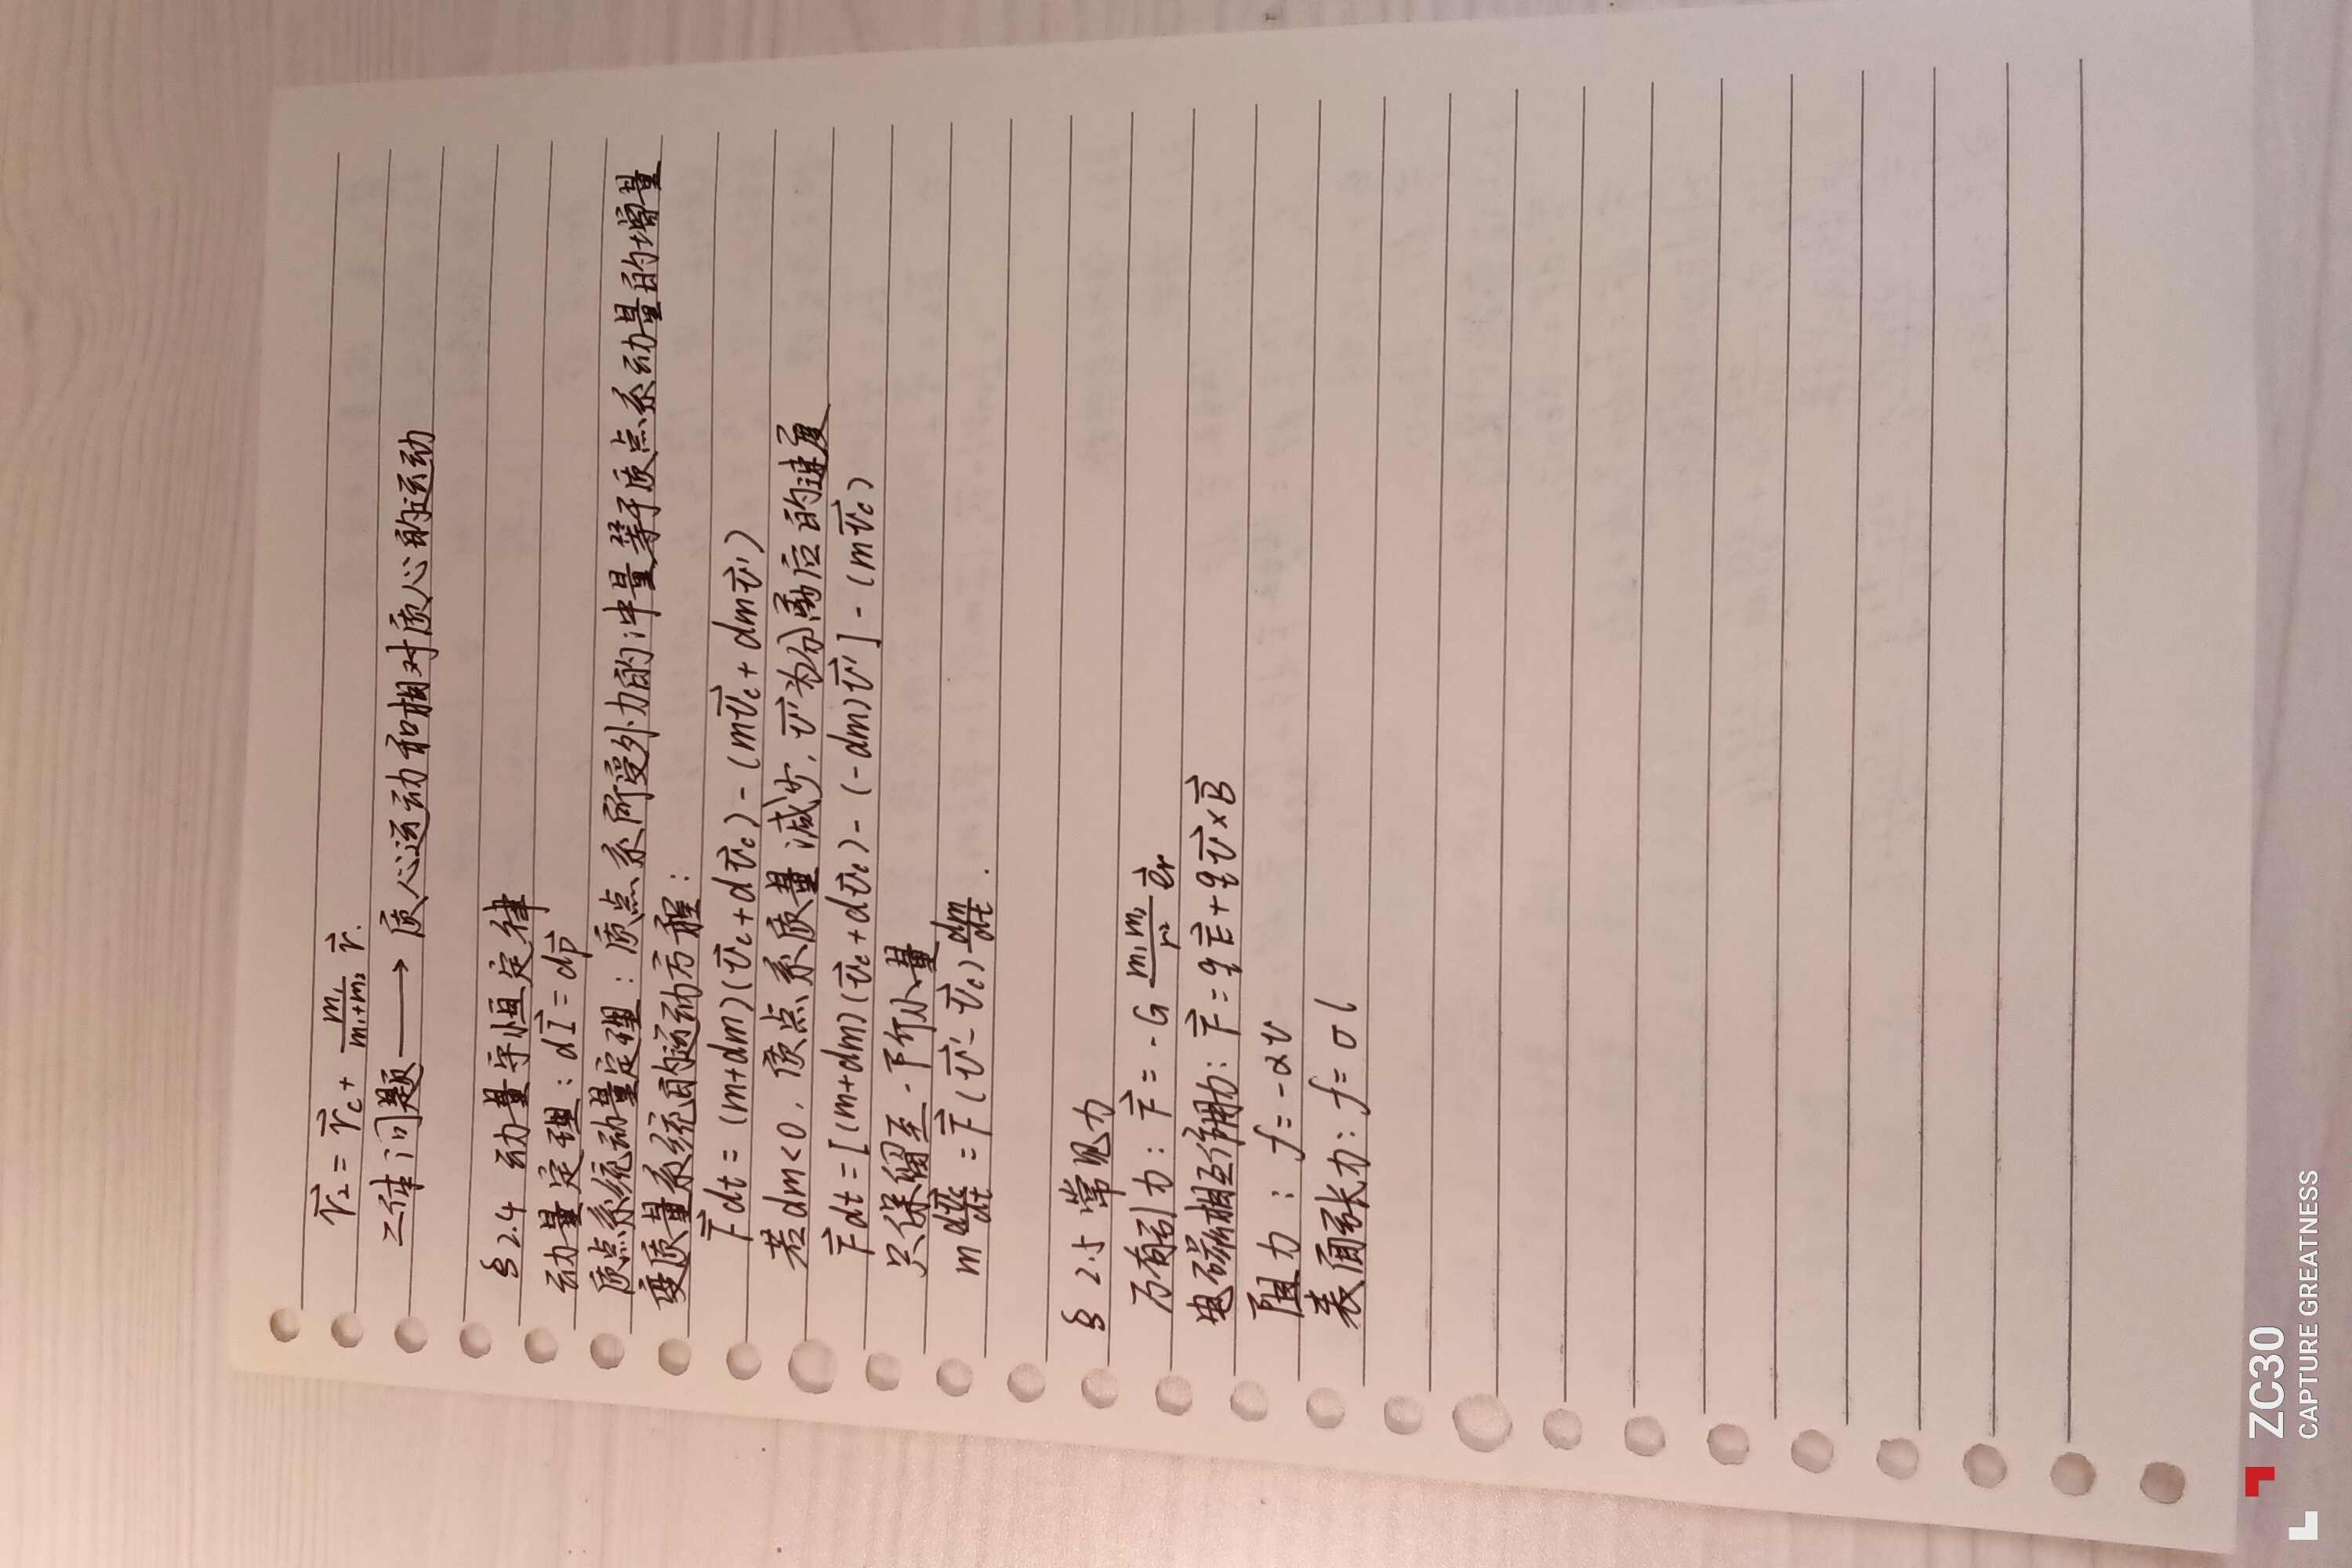 r⃗₂ = r⃗c + m₁/(m₁+m₂) r⃗.
二体问题 ⟶ 质心运动和相对质心的运动
§2.4 动量守恒定律
动量定理：dI⃗ = dp⃗
质点系统动量定理：质点系所受外力的冲量等于质点系动量的增量
变质量系统的运动方程：
F⃗dt = (m+dm)(v⃗c+dv⃗c) - (mv⃗c + dmv⃗')
若dm<0，质点系质量减少，v⃗'为分离后的速度
F⃗dt = [(m+dm)(v⃗c+dv⃗c) - (-dm)v⃗'] - (mv⃗c)
只保留至一阶小量
m dv⃗c/dt = F⃗ (v⃗' - v⃗c) dm/dt .
§2.5 常见力
万有引力：F⃗ = -G m₁m₂/r² e⃗r
电磁相互作用力：F⃗ = qE⃗ + qv⃗×B⃗
阻力：f = -αv
表面张力：f = σl
ZC30
CAPTURE GREATNESS